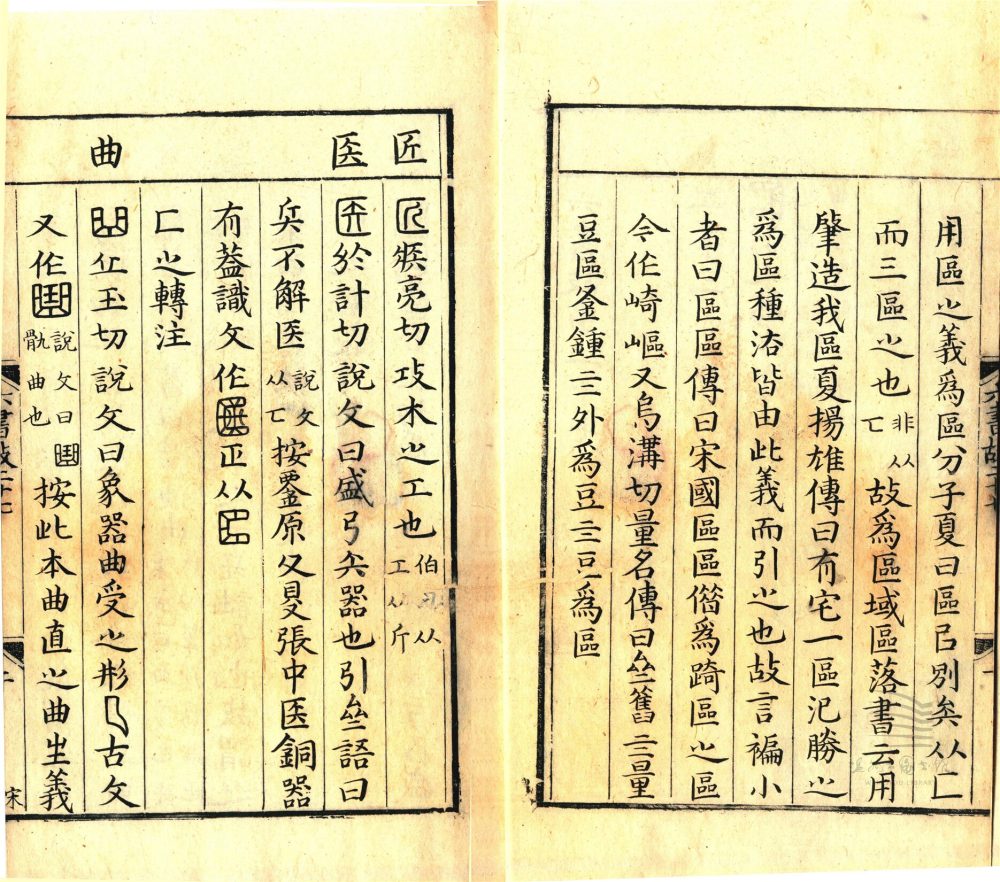 用區㞢義爲區分子夏曰區㠯別矣从匚
而三區㞢也非从匸故爲區域區落書云用
肇造我區夏揚雄傳曰有宅一區氾勝㞢
爲區種法皆由此義而引㞢也故言褊小
者曰區區傳曰宋國區區偕爲踦區㞢區
今作崎嶇又烏溝切量名傳曰亝舊亖量
豆區釜鍾亖升爲豆亖豆爲區
六書故二十七
匠
匠疾亮切攻木㞢工也伯曰从工从斤
医
医於計切說文曰盛弓矢器也引亝語曰
兵不解医說文从匸按劉原父㝵張中医銅器
有蓋識文作正从
匚㞢轉注
曲
丘玉切說文曰象器曲受㞢形古文
又作說文曰骫曲也按此本曲直㞢曲生義
六書故二十七
宋